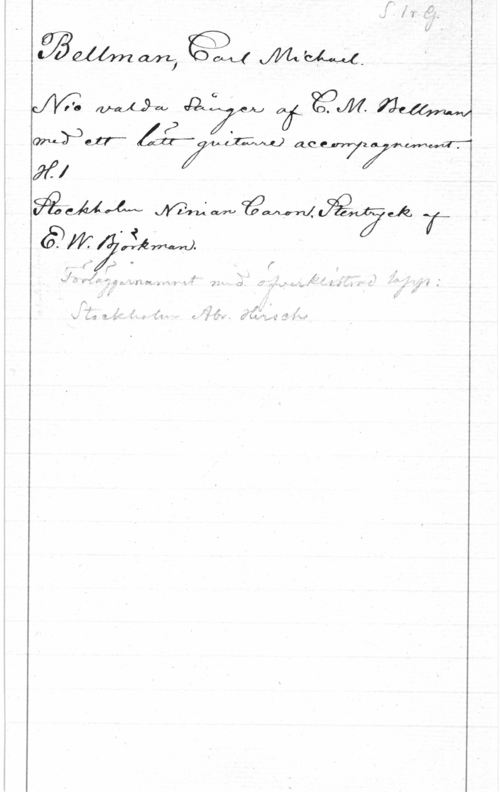 S. 1r G.
Bellman, Carl Michael.
Nio valda Sånger af C. M. Bellman
med ett lätt guitarre accompagnement.
H. 1
Stockholm Ninian Caron, Stentryck af
E. W. Björkman.
Förläggarnamnet med öfverklistrad lapp:
Stockholm Abr. Hirsch